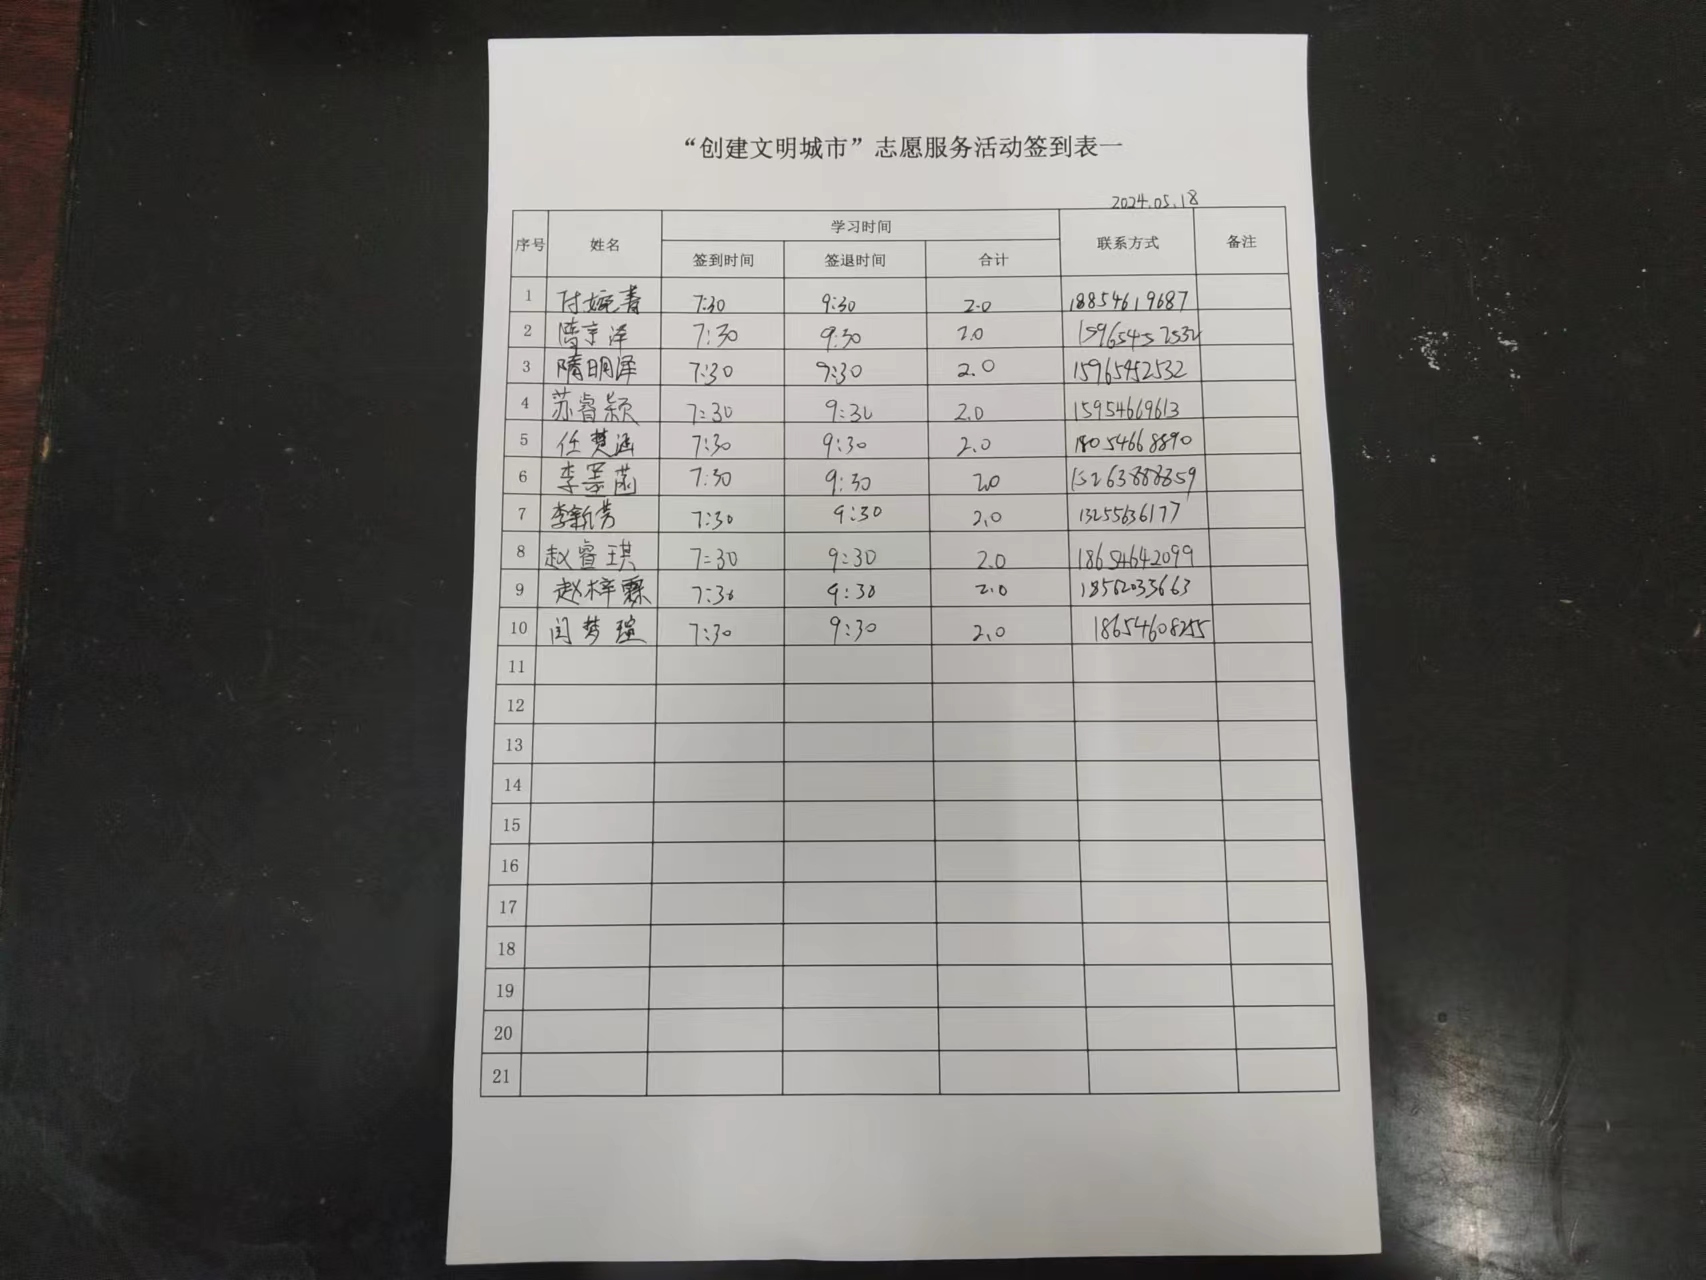 “创建文明城市”志愿服务活动签到表一
2024.05.18
序号 姓名 学习时间 联系方式 备注
签到时间 签退时间 合计
1 付婉春 7:30 9:30 2.0 18854619687
2 隋京泽 7:30 9:30 2.0 15965452532
3 隋明泽 7:30 9:30 2.0 15965452532
4 苏睿颖 7:30 9:30 2.0 15954669613
5 任楚涵 7:30 9:30 2.0 18054668890
6 李墨菡 7:30 9:30 2.0 15263888859
7 李新芳 7:30 9:30 2.0 13255636177
8 赵睿琪 7:30 9:30 2.0 18654642099
9 赵梓霖 7:30 9:30 2.0 18562035663
10 闫梦瑄 7:30 9:30 2.0 18654608255
11
12
13
14
15
16
17
18
19
20
21